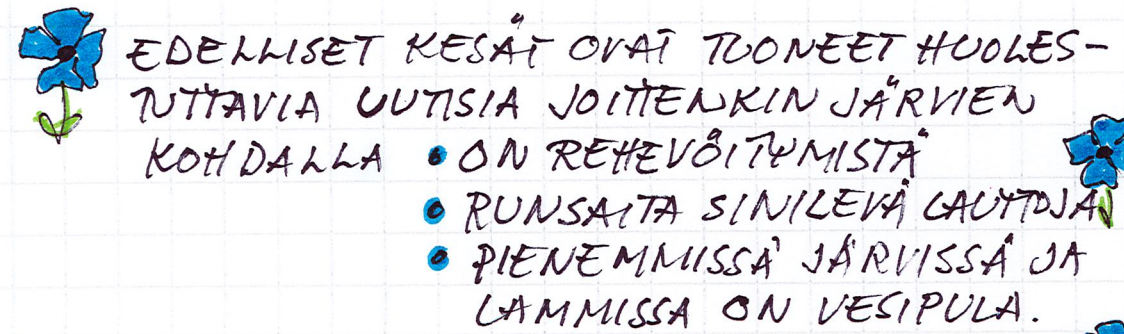 EDELLISET KESÄT OVAT TUONEET HUOLES-
TUTTAVIA UUTISIA JOITTENKIN JÄRVIEN
KOHDALLA • ON REHEVÖITYMISTÄ
• RUNSAITA SINILEVÄ LAUTTOJA
• PIENEMMISSÄ JÄRVISSÄ JA
LAMMISSA ON VESIPULA.